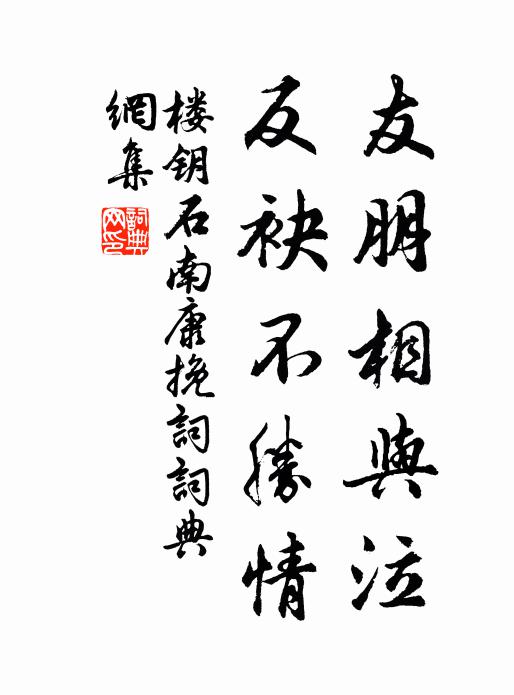 友朋相與泣
反袂不勝情
楼钥石南康挽詞詞典
網集
詞典
网印